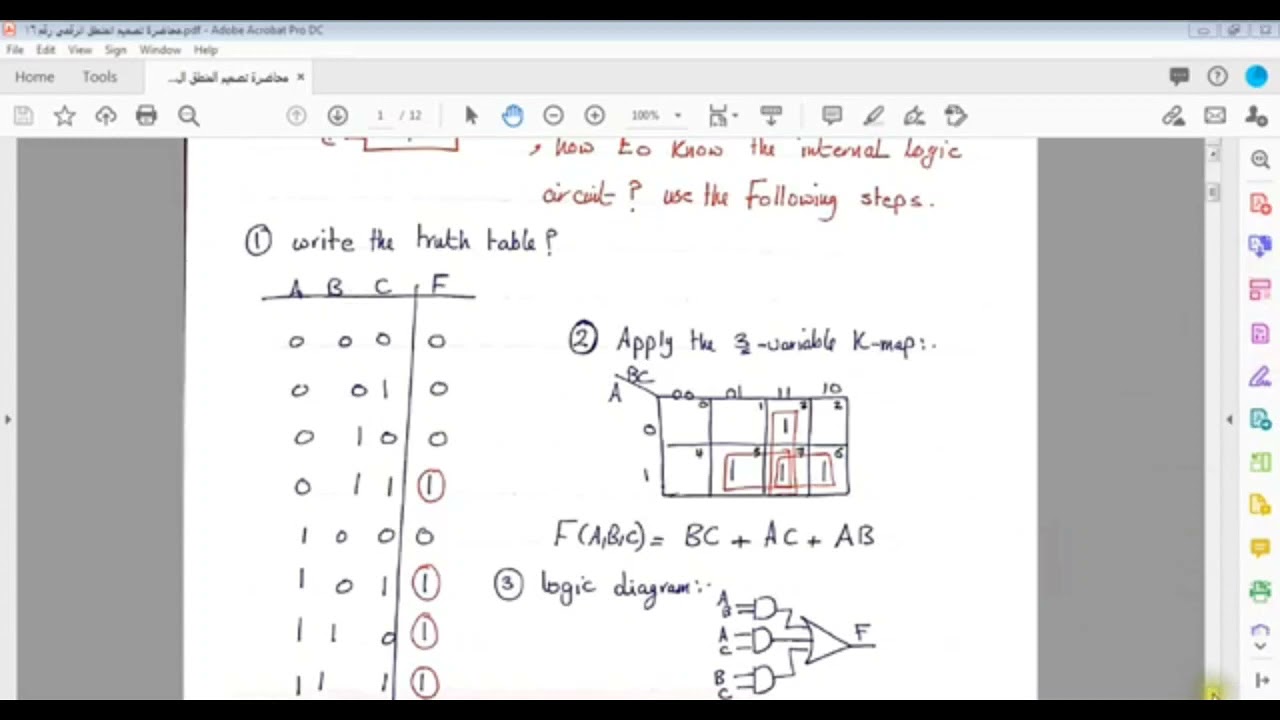 محاضرة تصميم المنطق الرقمي رقم ١٦.pdf - Adobe Acrobat Pro DC
File Edit View Sign Window Help
Home Tools محاضرة تصميم المنطق ال... ×
1 / 12 100%
, how to know the internal logic
circuit ? use the following steps.
① write the truth table ?
A B C F
0 0 0 0
0 0 1 0
0 1 0 0
0 1 1 1
1 0 0 0
1 0 1 1
1 1 0 1
1 1 1 1
② Apply the 3-variable K-map:.
BC
A 00 01 11 10
0 1 3 2
0 1
4 5 7 6
1 1 1 1
F(A,B,C) = BC + AC + AB
③ logic diagram:.
A
B
A F
C
B
C